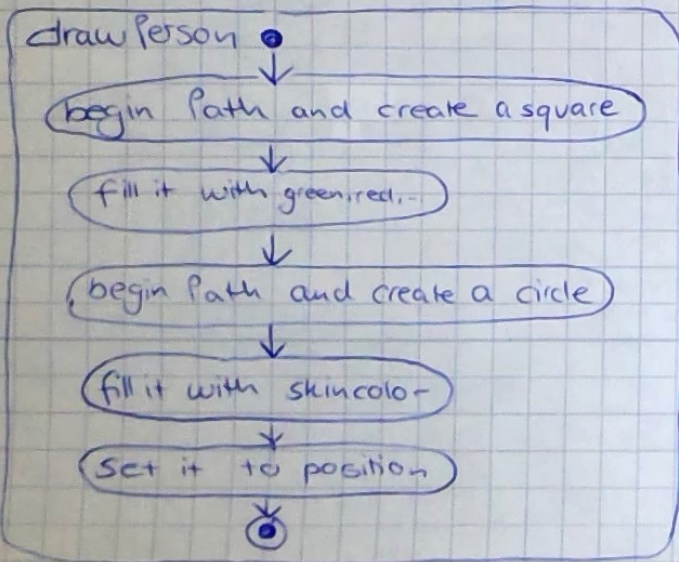 drawPerson
begin Path and create a square
fill it with green, red, ..
begin Path and create a circle
fill it with skincolor
set it to position